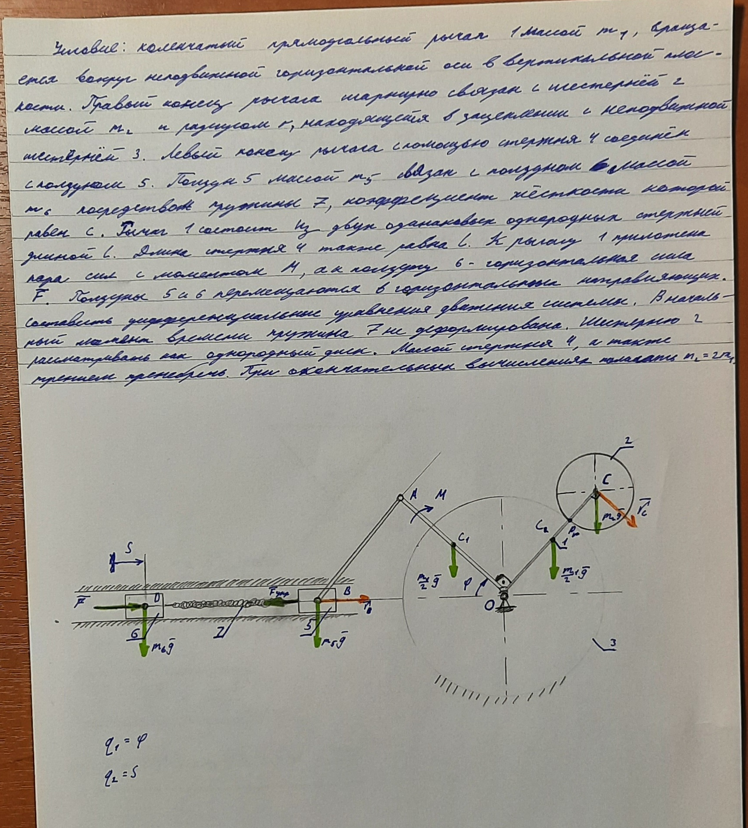 Условие: коленчатый прямоугольный рычаг 1 массой m₁, враща-
ется вокруг неподвижной горизонтальной оси в вертикальной плос-
кости. Правый конец рычага шарнирно связан с шестернёй 2
массой m₂ и радиусом r, находящейся в зацеплении с неподвижной
шестернёй 3. Левый конец рычага с помощью стержня 4 соединён
с ползуном 5. Ползун 5 массой m₅ связан с ползуном 6 массой
m₆ посредством пружины 7, коэффициент жёсткости которой
равен c. Рычаг 1 состоит из двух одинаковых однородных стержней
длиной l. Длина стержня 4 также равна l. К рычагу 1 приложена
пара сил с моментом M, а к ползуну 6 - горизонтальная сила
F̄. Ползуны 5 и 6 перемещаются в горизонтальных направляющих.
Составить дифференциальные уравнения движения системы. В началь-
ный момент времени пружина 7 не деформирована. Шестерню 2
рассматривать как однородный диск. Массой стержня 4, а также
трением пренебречь. При окончательных вычислениях полагать
2
A
M
C
C₂
C₁
m₂ḡ
1
S
m₁/2 ḡ
m₁/2 ḡ
φ
F̄
D
B
O
6
7
5
m₆ḡ
m₅ḡ
3
q₁ = φ
q₂ = S